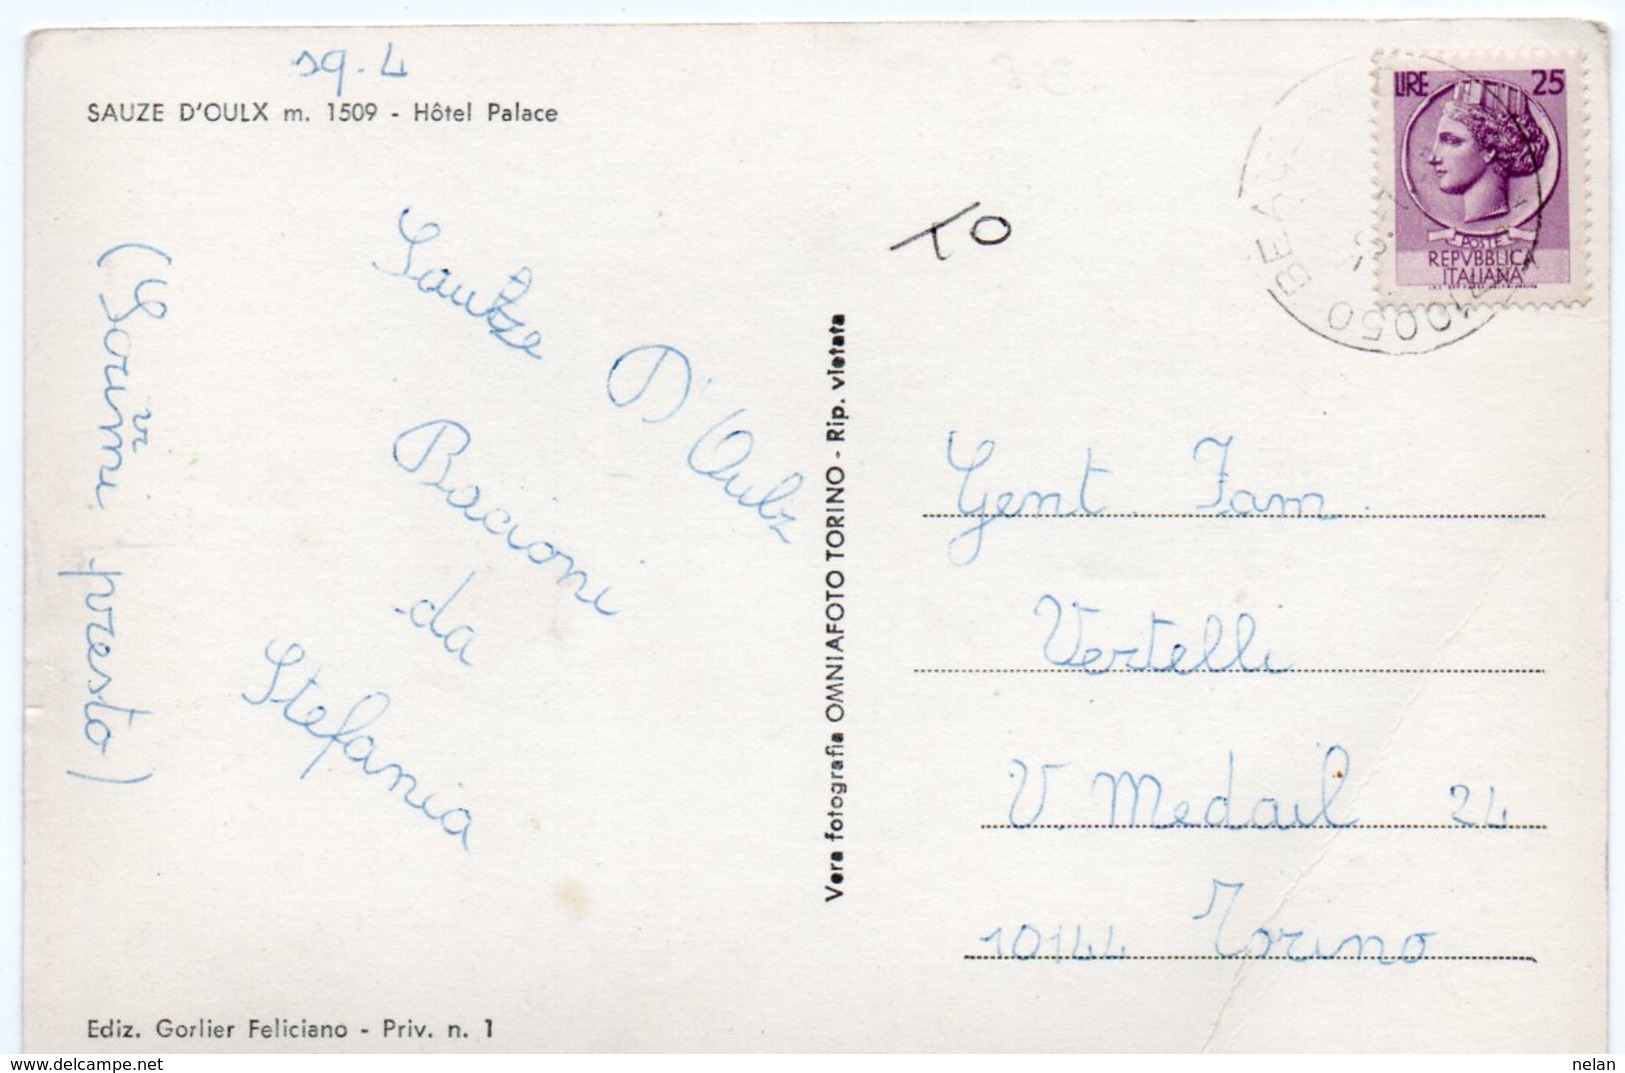 sq. 4
SAUZE D'OULX m. 1509 - Hôtel Palace
LIRE 25
POSTE
REPVBBLICA
ITALIANA
10050 BEA
TO
Sautze D'Oulx
Bacioni
da
Stefania
vi
(Scrimi presto)
Vera fotografia OMNIAFOTO TORINO - Rip. vietata
Gent. Fam.
Vertelli
V. Medail 24
10144 Torino
Ediz. Gorlier Feliciano - Priv. n. 1
www.delcampe.net
nelan